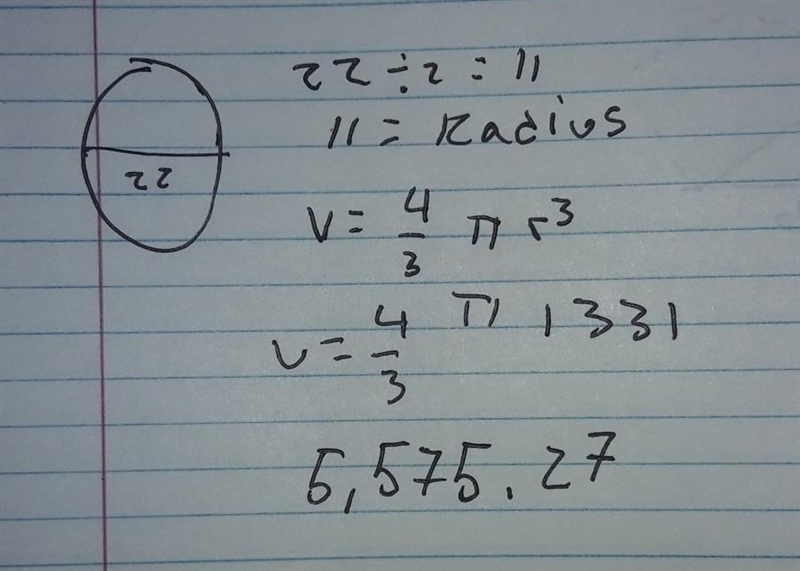 22 ÷ 2 = 11
11 = Radius
22
V = 4/3 π r³
V = 4/3 π 1331
5,575.27